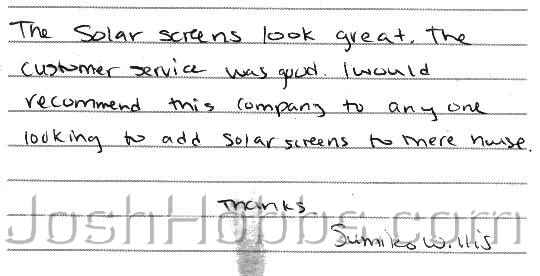 The Solar screens look great. The
customer service was good. I would
recommend this company to any one
looking to add solar screens to there house.
Thanks
JoshHobbs.com
Sumiko Willis